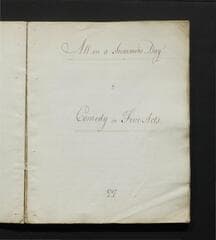 All in a Summers Day
a
Comedy in Five Acts